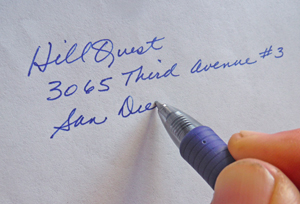 HillQuest
3065 Third Avenue #3
San Die